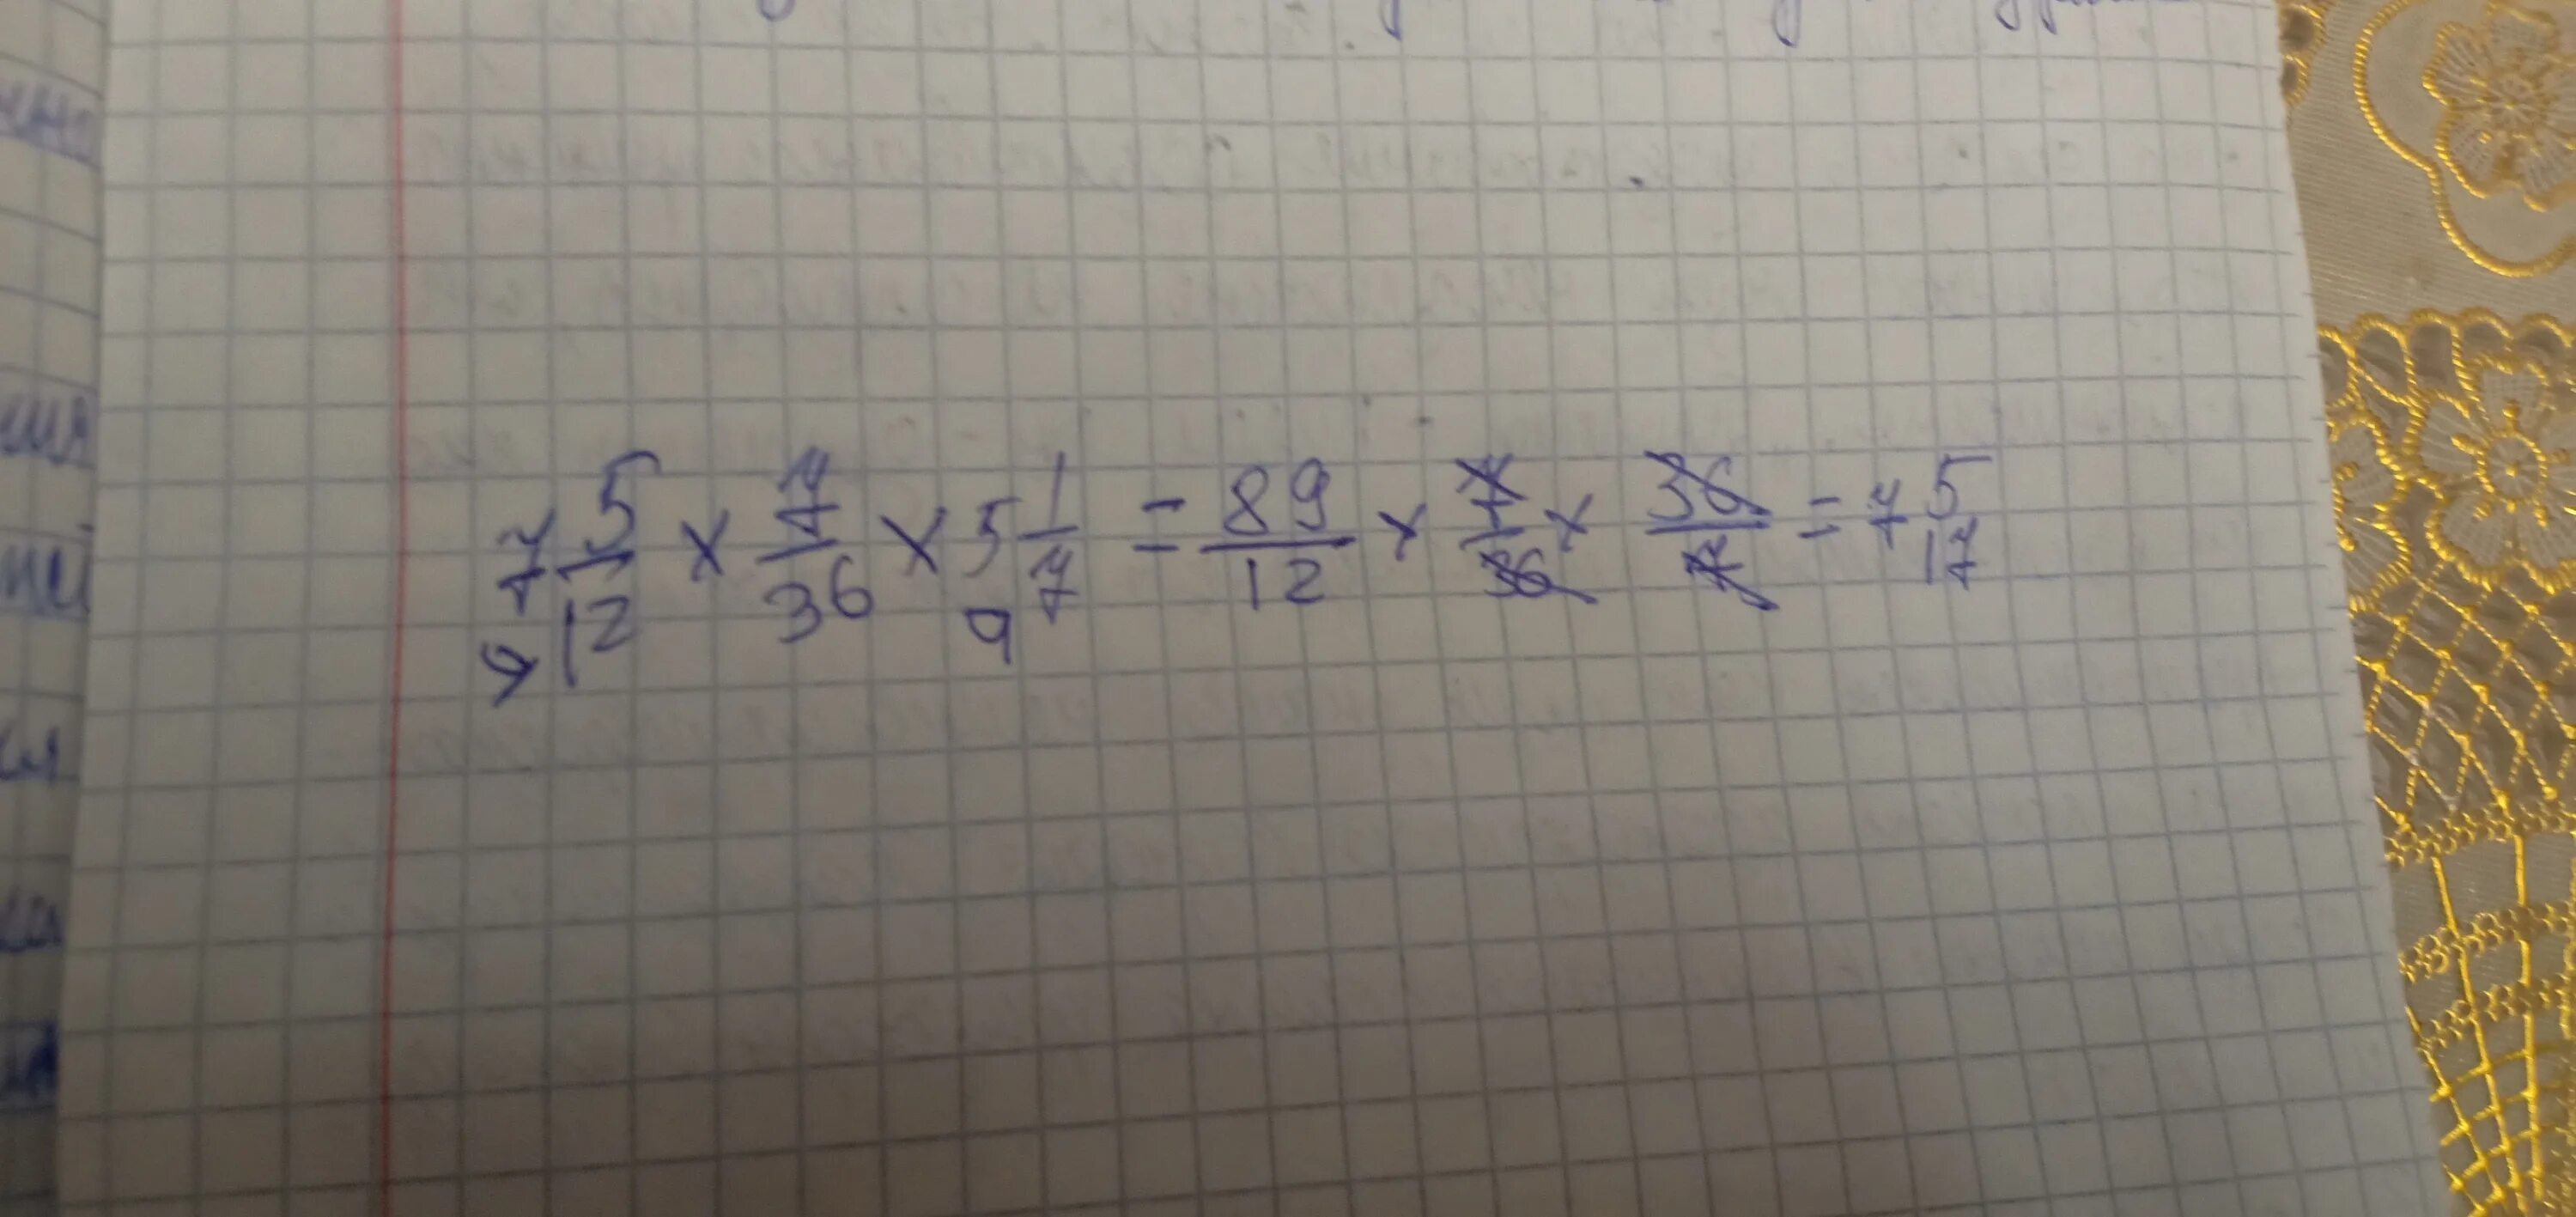 7 5/12 × 7/36 × 5 1/7 = 89/12 × 7/36 × 36/7 = 7 5/17
9 9